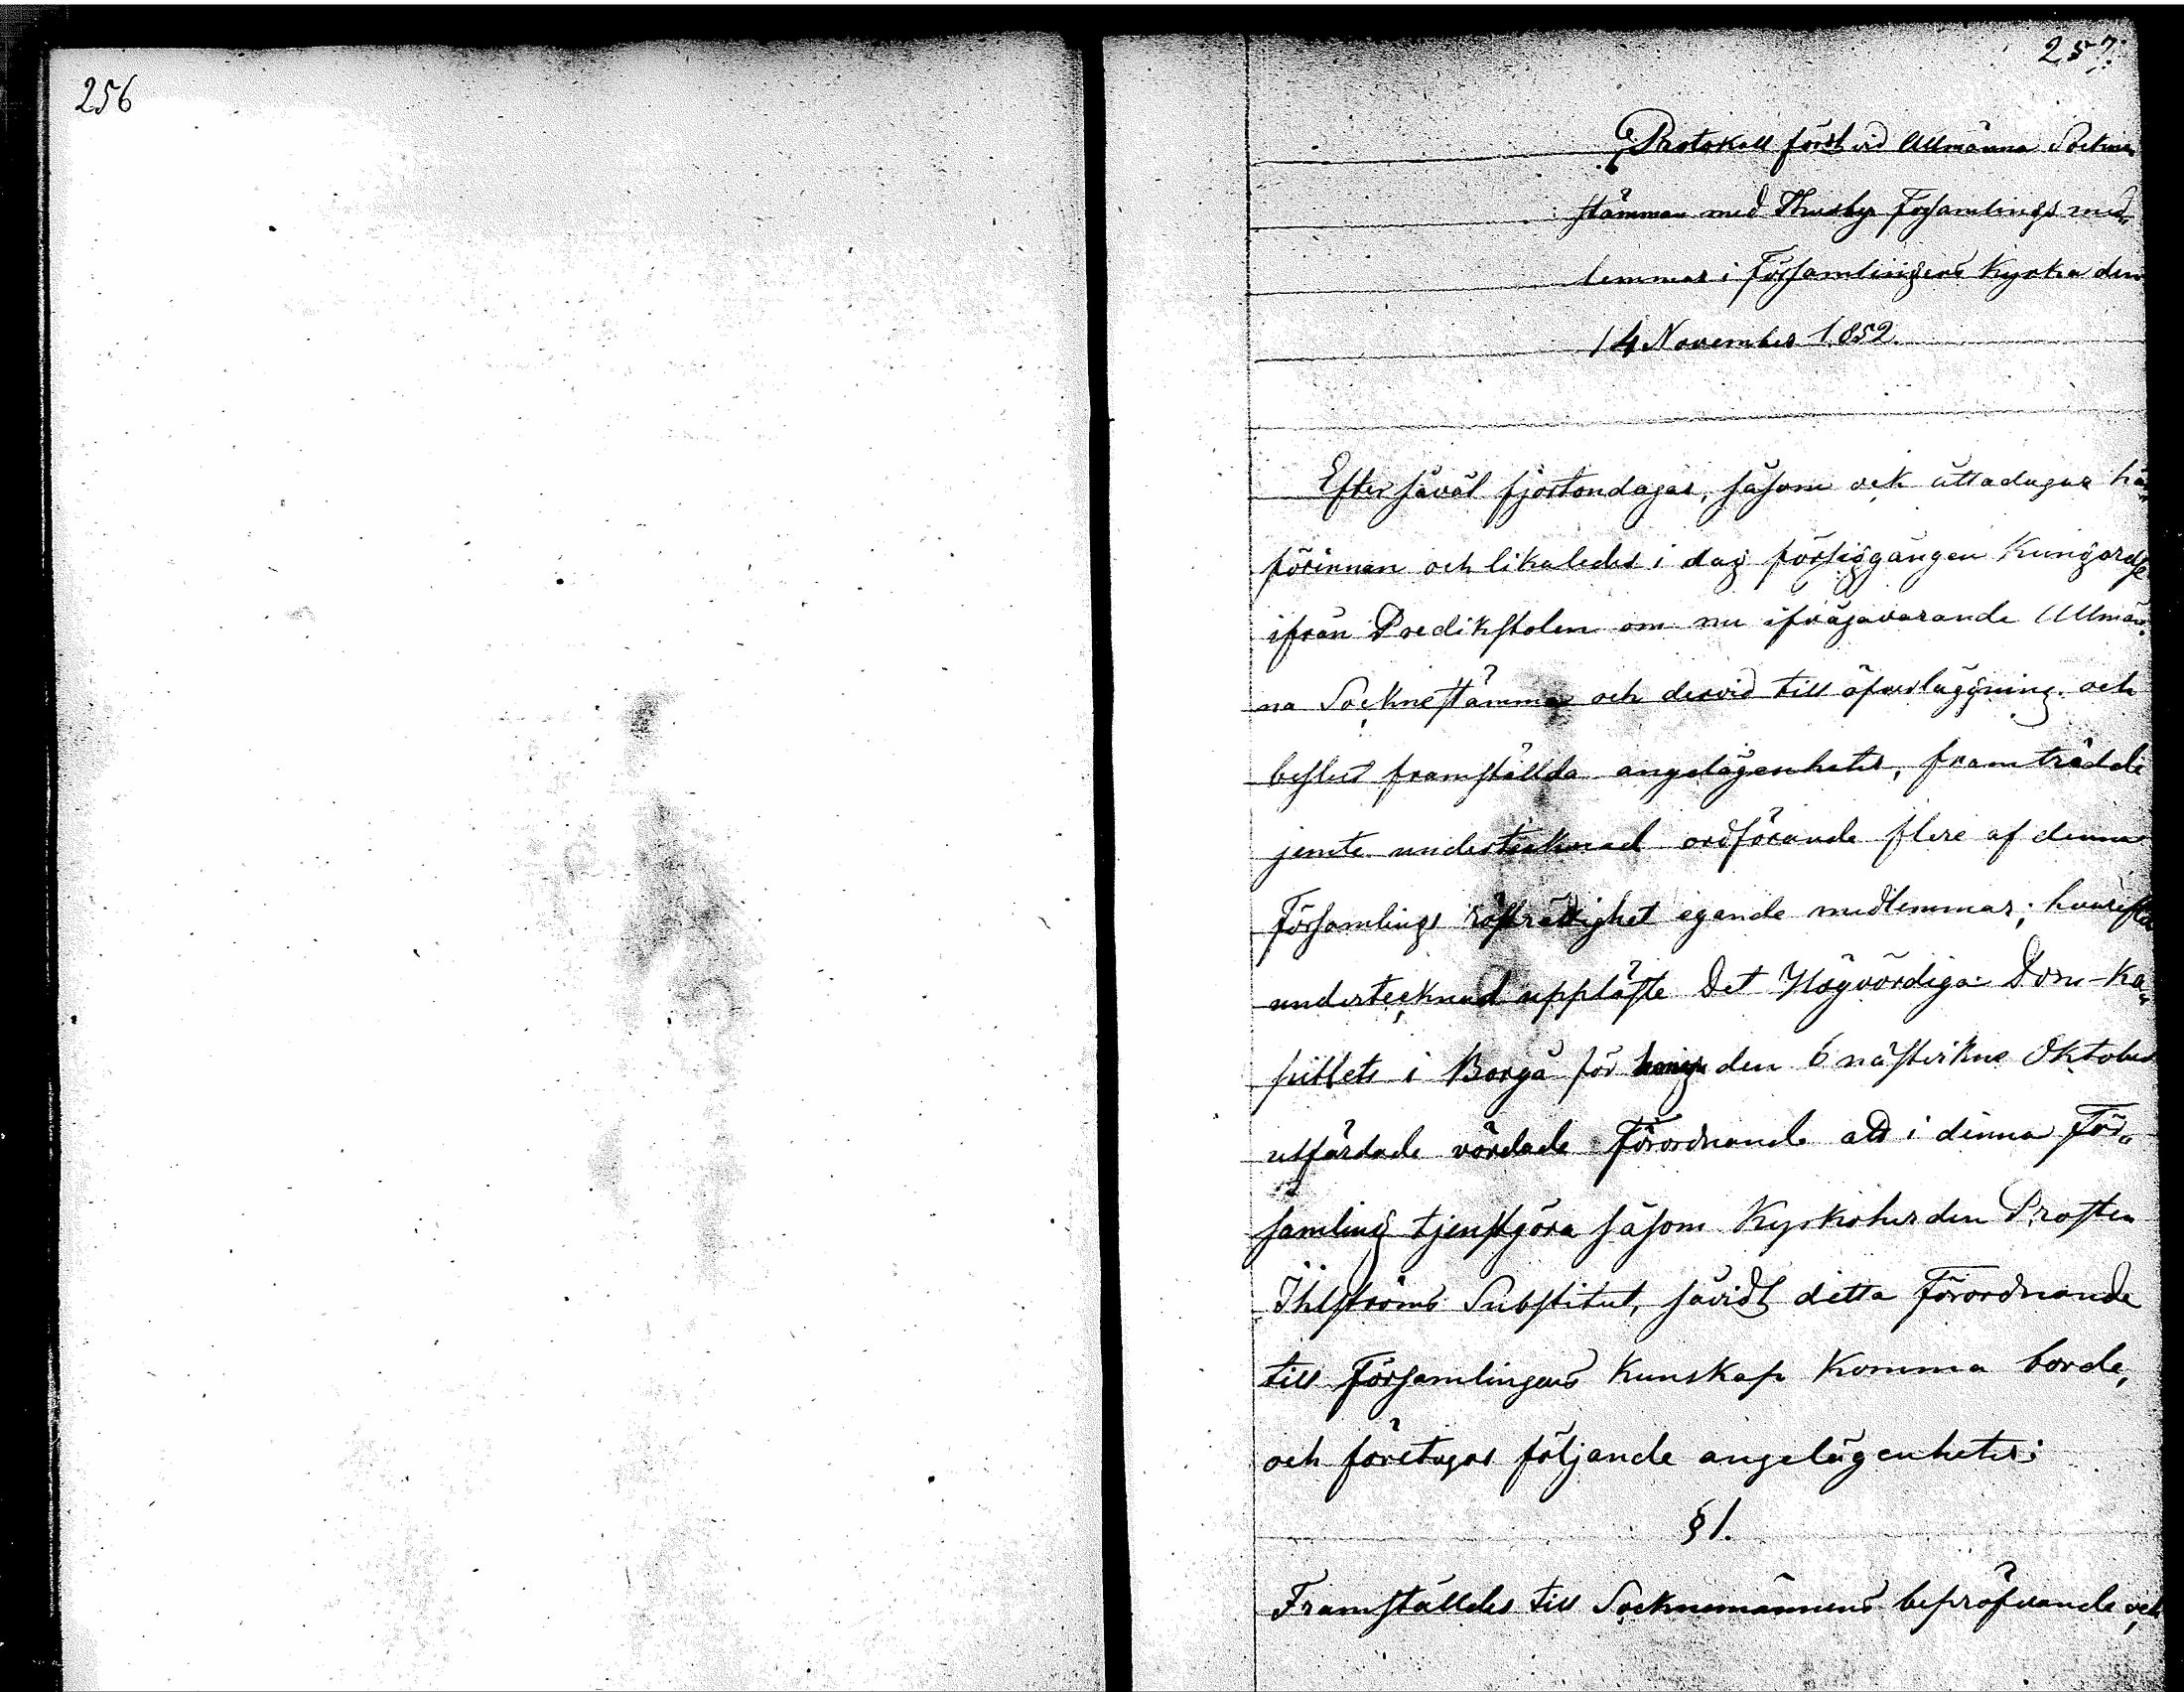 256
257.
Protokoll fördt vid Allmänna Sockne
stämman med Thusby Församlings med„
lemmar i Församlingens Kyrka den
14 November 1852.
Efter såväl fjortondagar, såsom ock åttadagar här
förinnan och likaledes i dag försiggången Kungörelse
ifrån Predikstolen om nu ifrågavarande Allmän„
na Socknestämma och dervid till öfverläggning och
beslut framställda angelägenheter, framträdde
jemte undertecknad ordförande flere af denna
Församlings rösträttighet egande medlemmar; hvarefter
undertecknad uppläste Det Högvördiga Dom-Ka„
pitlets i Borgå för den 6 nästvikne Oktober
utfärdade vördade Förordnande att i denna För„
samling tjenstgöra såsom Kyrkoherden Prosten
Ihlströms Substitut, såvidt detta Förordnande
till Församlingens Kunskap komma borde,
och företogos följande angelägenheter:
§ 1.
Framställdes till Socknemännens bepröfvande och